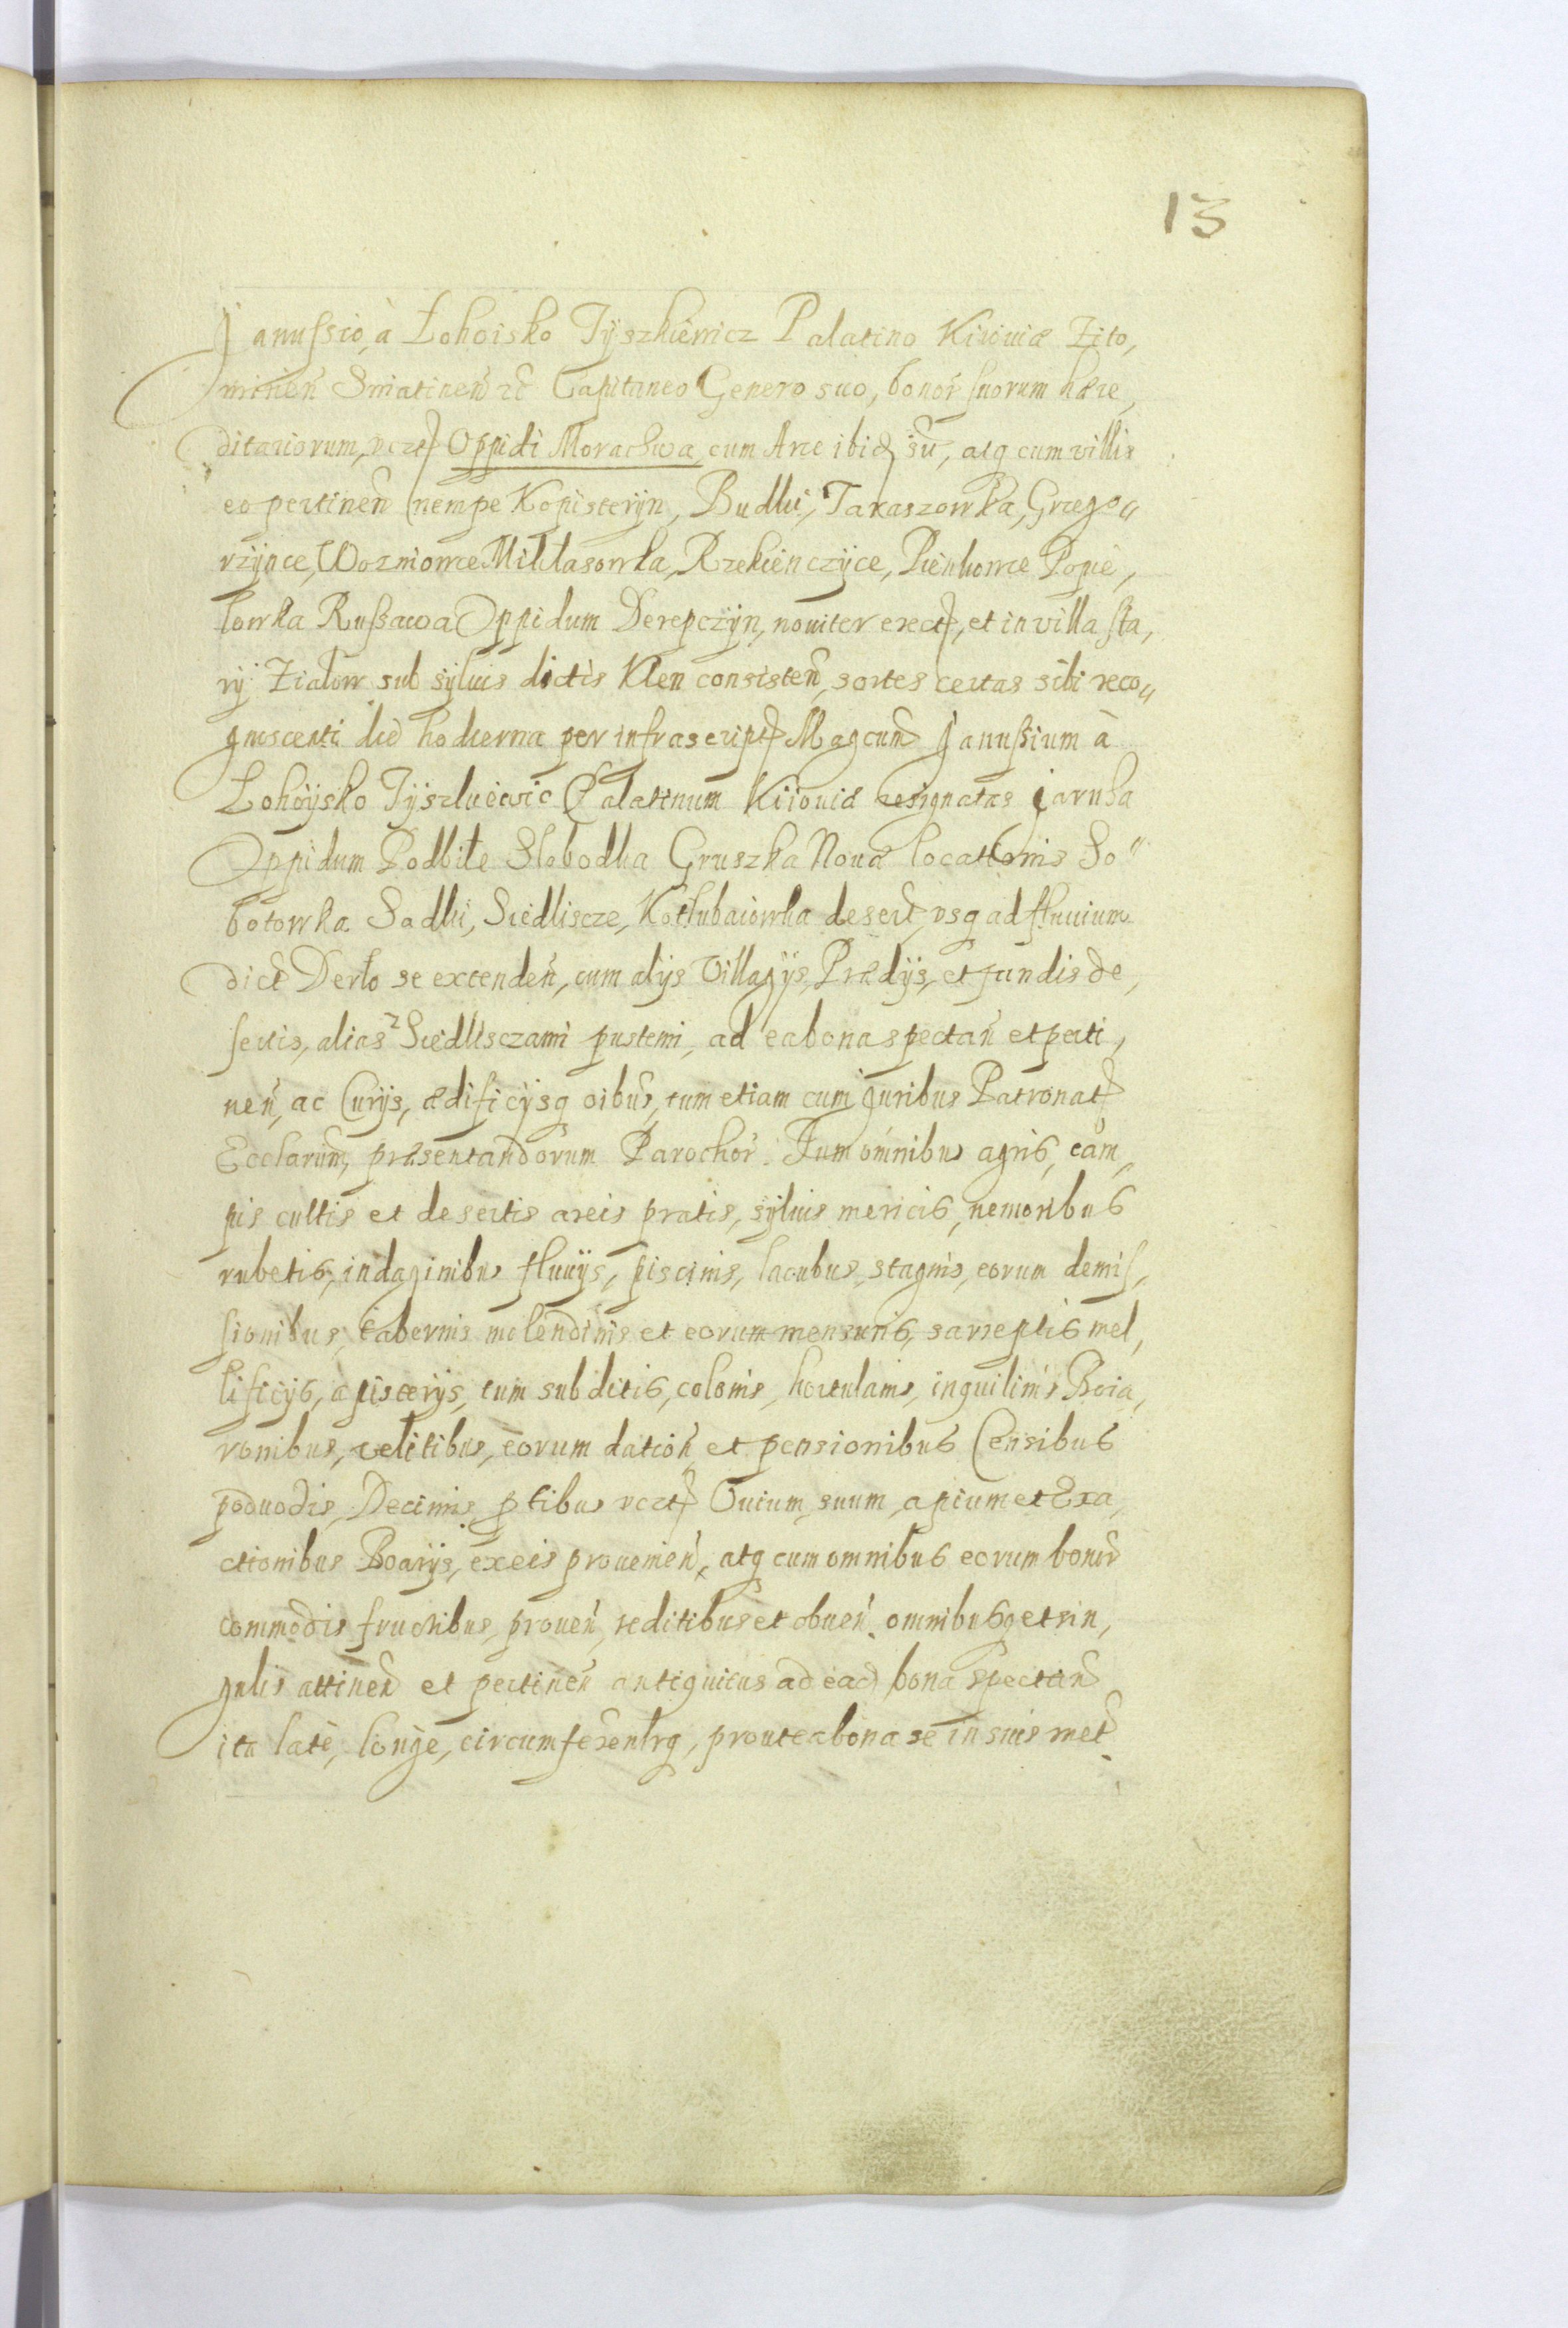 13
Janussio, à Łohoisko Tyszkiewicz Palatino Kiiouiæ Zito,
mirień Sniatineń etc Capitaneo Genero suo, bonoŕ suorum hære,
ditariorum, vczt Oppidi Morachwa, cum Arce ibid sũ, atq cum villis
eo pertineń nempe Kopisteryn, Budki, Taraszowka, Grzego„
rzynce, Wozniowce Mikłasowka, Rzekienczyce, Pieńkowce Popie,
lowka Russawa Oppidum Derepczyn, nouiter erect, et in villa sta,
ry Ziałow sub syluis dictis Klen consisteń, sortes certas sibi reco„
gnoscenti die hodierna per infrascript Magcum Janussium à
Łohoysko Tyszkiewic Palatinum Kiiouiæ resignatas Jaruha
Oppidum Podbiłe Słobodka Gruszka Nouæ locationis So„
botowka Sadki, Siedliscze, Kotłubaiowka desert, vsq ad fluuium
dict Derło se extendeń, cum alys Villagys, Prædys, et fundis de,
sertis, alias Siedlisczami pustemi, ad ea bona spectań et perti,
neń, ac Curys, ædificysq oibus, tum etiam cum Juribus Patronat
Ecclarum, præsentandorum Parochoŕ. Tum omnibus agris, cam,
pis cultis et desertis areis pratis, syluis mericis, nemoribus
rubetis, indaginibus fluuys, piscinis, lacubus, stagnis, eorum demis,
sionibus, tabernis molendinis et eorum mensuris, sarreptis mel,
lificys, apisterys, tum subditis, colonis, hortulanis, inquilinis Boia,
ronibus, velitibus, eorum datioń et pensionibus Censibus
poduodis, Decimis, ptibus vczt Ouium, suum, apium et Exa,
ctionibus Boarys, ex eis prouenień, atq cum omnibus eorum bonis
commodis fructibus, proueń, reditibus et obueń. omnibusq et sin,
gulis attineń et pertineń antiquitus ad ead bona spectań
ita late, longe, circumferentrq, prout ea bona se in suis met